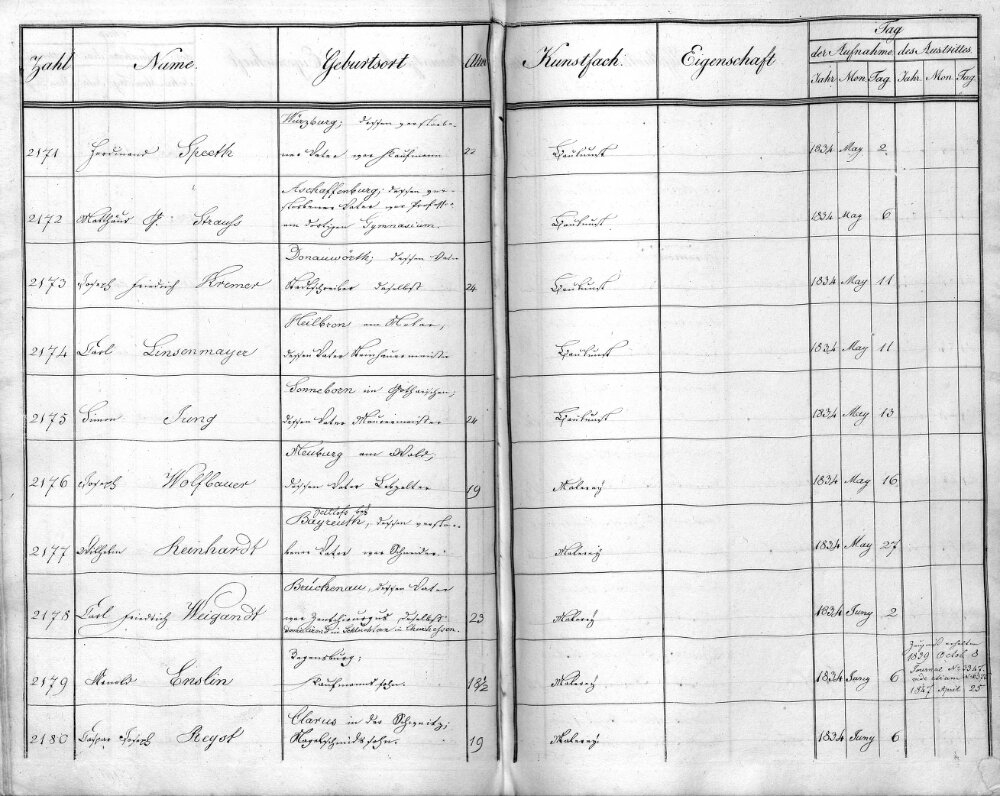 Zahl Name. Geburtsort Alter Kunstfach. Eigenschaft Tag
der Aufnahme des Austrittes.
Jahr Mon. Tag. Jahr. Mon. Tag
Würzburg; dessen verstorbe-
2171 Ferdinand Speeth ner Vater war Kaufmann 22 Baukunst 1834 May 2
Aschaffenburg; dessen ver-
storbener Vater war Profess.
2172 Matthäus G. Strauss am dortigen Gymnasium. Baukunst 1834 May 6
Donauwörth; dessen Vater
2173 Joseph Friedrich Kremer Stadtschreiber daselbst 24 Baukunst 1834 May 11
Heilbronn am Nekar,
2174 Carl Linsenmayer dessen Vater Steinhauermeister Baukunst 1834 May 11
Sonneborn im Gothaischen;
2175 Simon Jung dessen Vater Maurermeister 24 Baukunst 1834 May 13
Neuburg am Wald;
2176 Joseph Wolfbauer dessen Vater Lebzelter 19 Malerey 1834 May 16
Bayreuth, dessen verstor-
2177 Wilhelm Reinhardt bener Vater war Schneider. Malerey 1834 May 27
Brückenau, dessen Vater
2178 Carl Friedrich Weigandt war daselbst 23 Malerey 1834 Juny 2
Regensburg;
2179 Arnold Enslin Kaufmannssohn. 18 1/2 Malerey 1834 Juny 6
1839 Octob 8
Journal No 3347.
1847 April 25
Clarus in der Schweitz;
2180 Caspar Joseph Reyst Nagelschmidssohn. 19 Malerey 1834 Juny 6